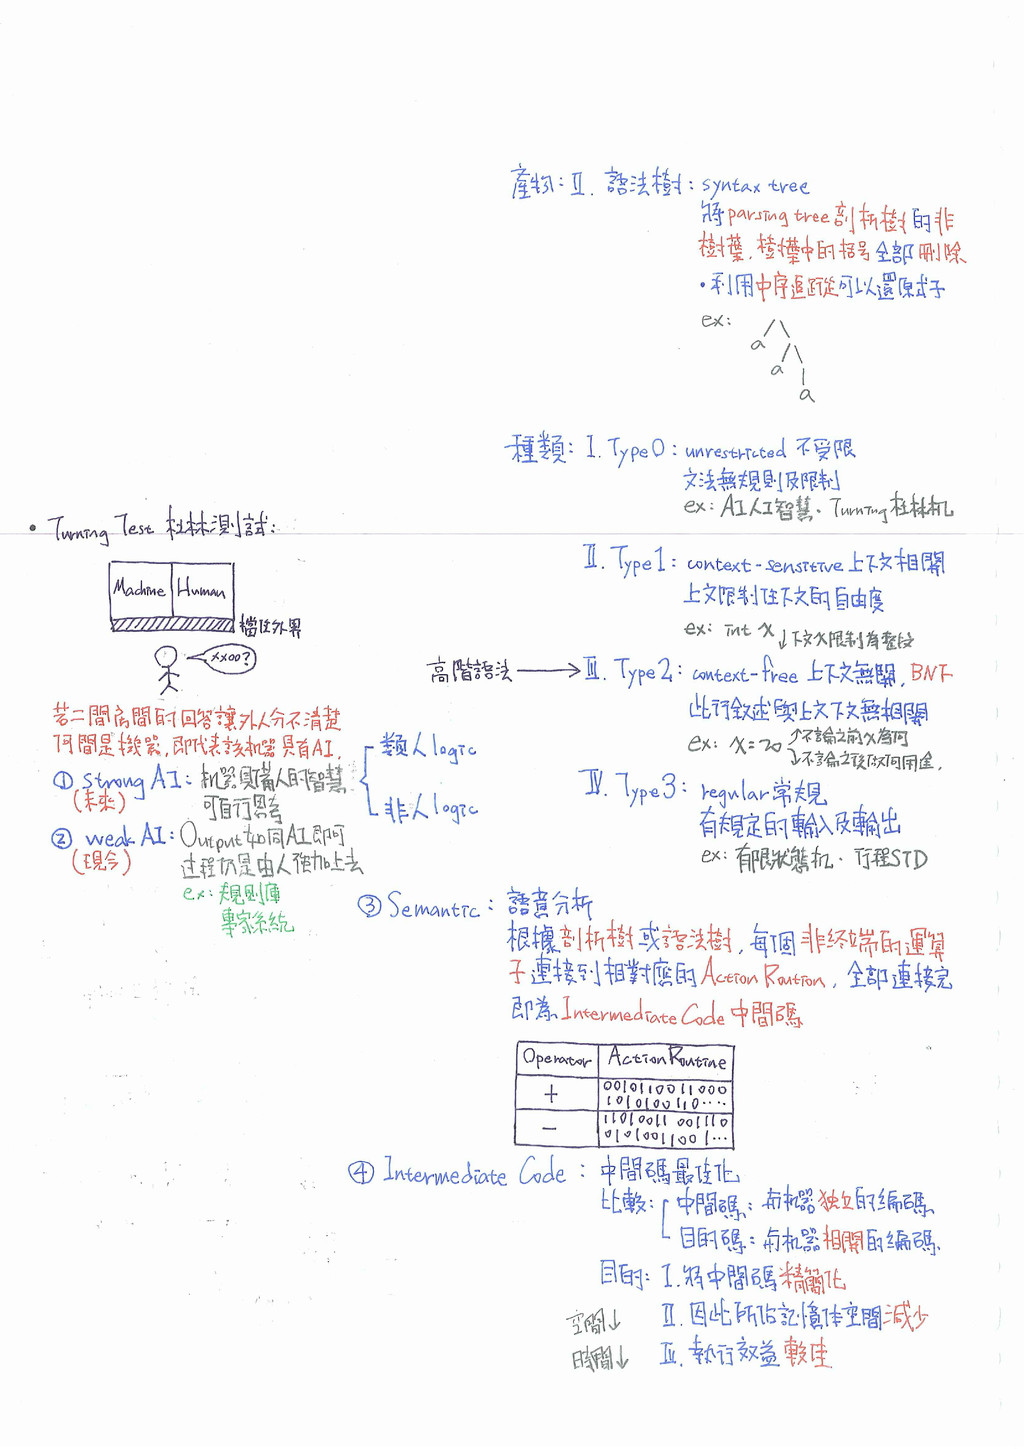 產物:II. 語法樹: syntax tree
將parsing tree剖析樹的非
樹葉,樹葉中的括号全部刪除
•利用中序追蹤從可以還原式子
ex:
a
a
a
種類: I. Type0: unrestricted 不受限
文法無規則及限制
ex: AI人工智慧、Turning杜林机
II. Type1: context-sensitive 上下文相關
上文限制住下文的自由度
ex: int x ↓下文x限制為整校
高階語法 → III. Type2: context-free 上下文無關, BNF
此行敘述與上文下文無相關
ex: x=20 ↗不論之前x為何
↘不論之後做何用途,
IV. Type3: regular 常規
有規定的輸入及輸出
ex: 有限狀態机、行程STD
• Turning Test 杜林測試:
Machine Human
擋住外界
xxoo?
若二間房間的回答讓外人分不清楚
何間是機器,即代表該机器具有AI,
① strong AI: 机器具備人的智慧
(未來) 可自行思考
類人logic
非人logic
② weak AI: Output如同AI即可
(現今) 过程仍是由人強加上去
ex: 規則庫
專家系統
③ Semantic: 語意分析
根據剖析樹或語法樹,每個非終端的運算
子連接到相對應的Action Roution, 全部連接完
即為Intermediate Code 中間碼
Operator Action Routine
+ 0010110011000
1010100110....
− 11010011 001110
0101001100 1...
④ Intermediate Code: 中間碼最佳化
比較: 中間碼: 與机器独立的編碼
目的碼: 與机器相關的編碼
目的: I. 將中間碼精簡化
空間↓ II. 因此所佔記憶体空間減少
時間↓ III. 執行效益較佳